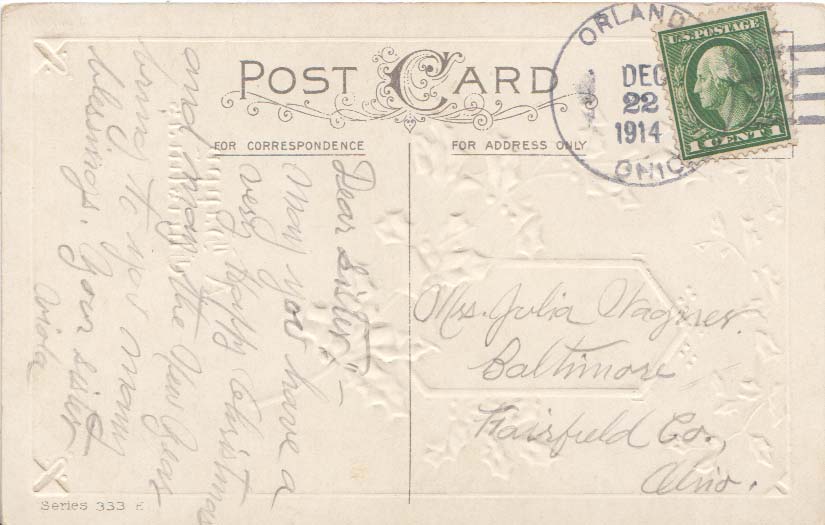 POST CARD
FOR CORRESPONDENCE
FOR ADDRESS ONLY
ORLAND
DEC
22
1914
OHIO
U.S. POSTAGE
1 CENT 1
Dear Sister"-
may you have a
very happy Christmas
and may the New Year
bring to you many
blessings. Your sister
Viola
Mrs. Julia Wagner.
Baltimore
Fairfield Co.,
Ohio.
Series 333 E